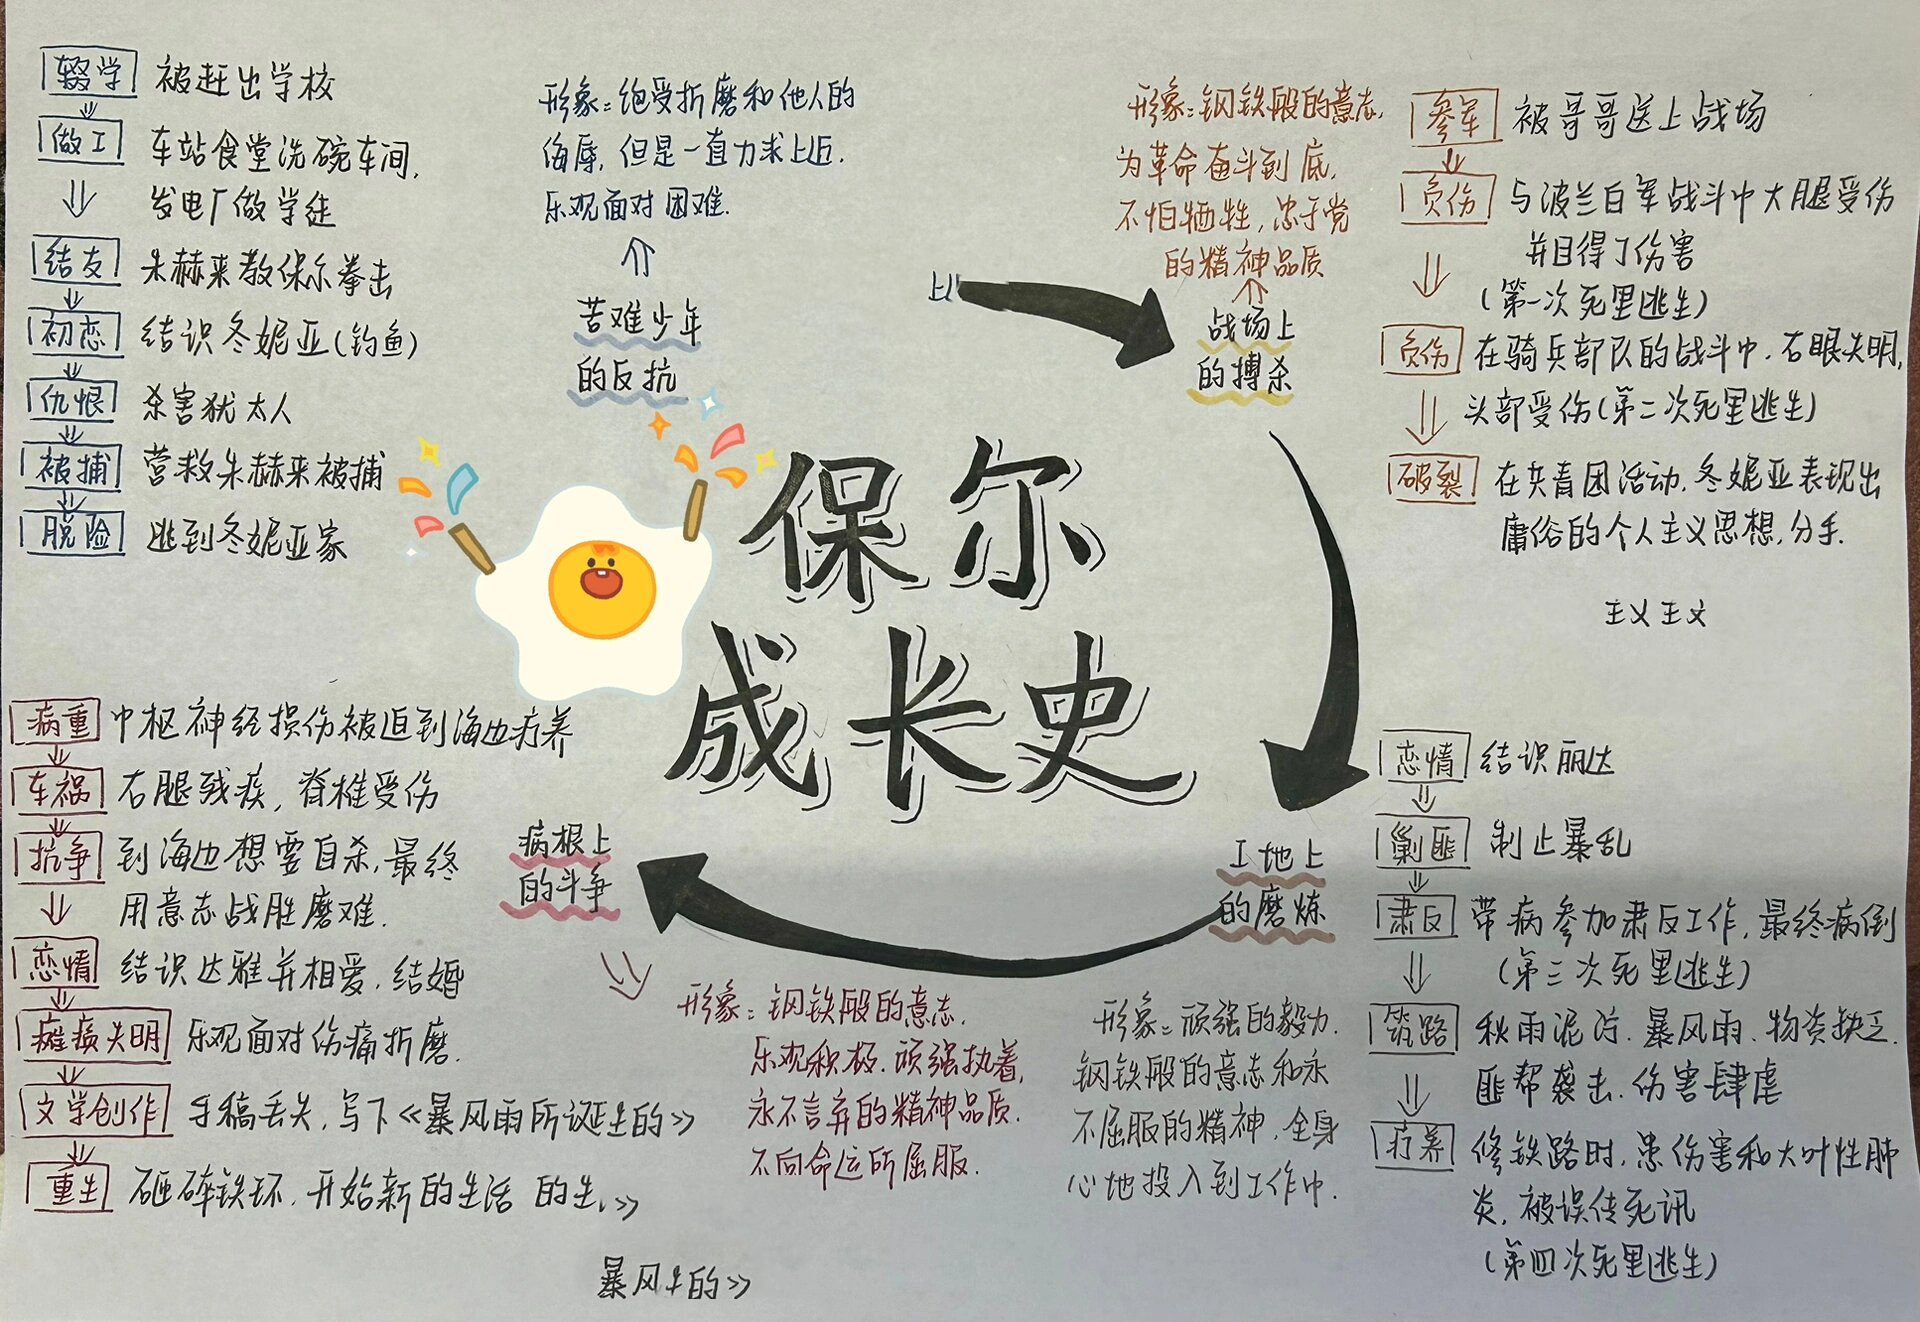 保尔
成长史
辍学 被赶出学校
做工 车站食堂洗碗车间,
发电厂做学徒
结友 朱赫来教保尔拳击
初恋 结识冬妮亚(钓鱼)
仇恨 杀害犹太人
被捕 营救朱赫来被捕
脱险 逃到冬妮亚家
形象:饱受折磨和他人的
侮辱,但是一直力求上
乐观面对困难.
苦难少年
的反抗
形象:钢铁般的意志,
为革命奋斗到底,
不怕牺牲,忠于党
的精神品质
战场上
的搏杀
参军 被哥哥送上战场
负伤 与波兰白军战斗中大腿受伤
并且得了伤害
(第一次死里逃生)
负伤 在骑兵部队的战斗中,右眼失明,
头部受伤(第二次死里逃生)
破裂 在共青团活动,冬妮亚表现出
庸俗的个人主义思想,分手.
主义主义
恋情 结识丽达
剿匪 制止暴乱
肃反 带病参加肃反工作,最终病倒
(第三次死里逃生)
筑路 秋雨泥泞.暴风雨.物资缺乏.
匪帮袭击.伤害肆虐
疗养 修铁路时,患伤害和大叶性肺
炎,被误传死讯
(第四次死里逃生)
工地上
的磨炼
形象:顽强的毅力.
钢铁般的意志和永
不屈服的精神,全身
心地投入到工作中.
病根上
的斗争
形象:钢铁般的意志.
乐观积极.顽强执着,
永不言弃的精神品质.
不向命运所屈服.
病重 中枢神经损伤被迫到海边疗养
车祸 右腿残疾,脊椎受伤
抗争 到海边想要自杀,最终
用意志战胜磨难.
恋情 结识达雅并相爱,结婚
瘫痪失明 乐观面对伤痛折磨.
文学创作 手稿丢失,写下《暴风雨所诞生的》
重生 砸碎铁环,开始新的生活 的生》
暴风生的》